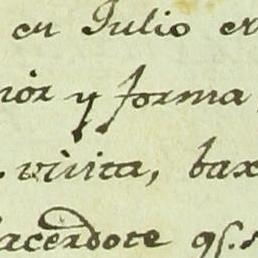 en Julio en
nor y forma
visita, bax
acerdote qe.